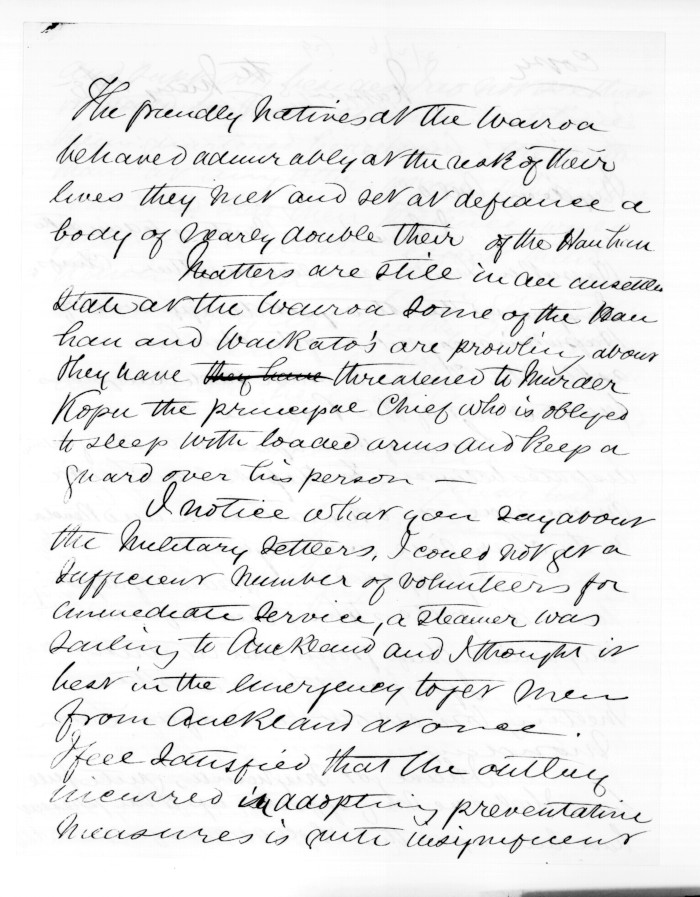 The friendly Natives at the Wairoa
behaved admirably at the risk of their
lives they met and set at defiance a
body of nearly double their of the Hau hau
Matters are still in an unsettled
State at the Wairoa Some of the Hau
hau and Waikato's are prowling about
they have they have threatened to Murder
Kopu the principal Chief who is obliged
to sleep with loaded arms and keep a
guard over his person —
I notice what you say about
the Military Settlers, I could not get a
Sufficient Number of volunteers for
immediate Service, a steamer was
sailing to Auckland and I thought it
best in the emergency to get men
from Auckland at once.
I feel satisfied that the outlay
incurred in adopting preventative
Measures is quite insignificant